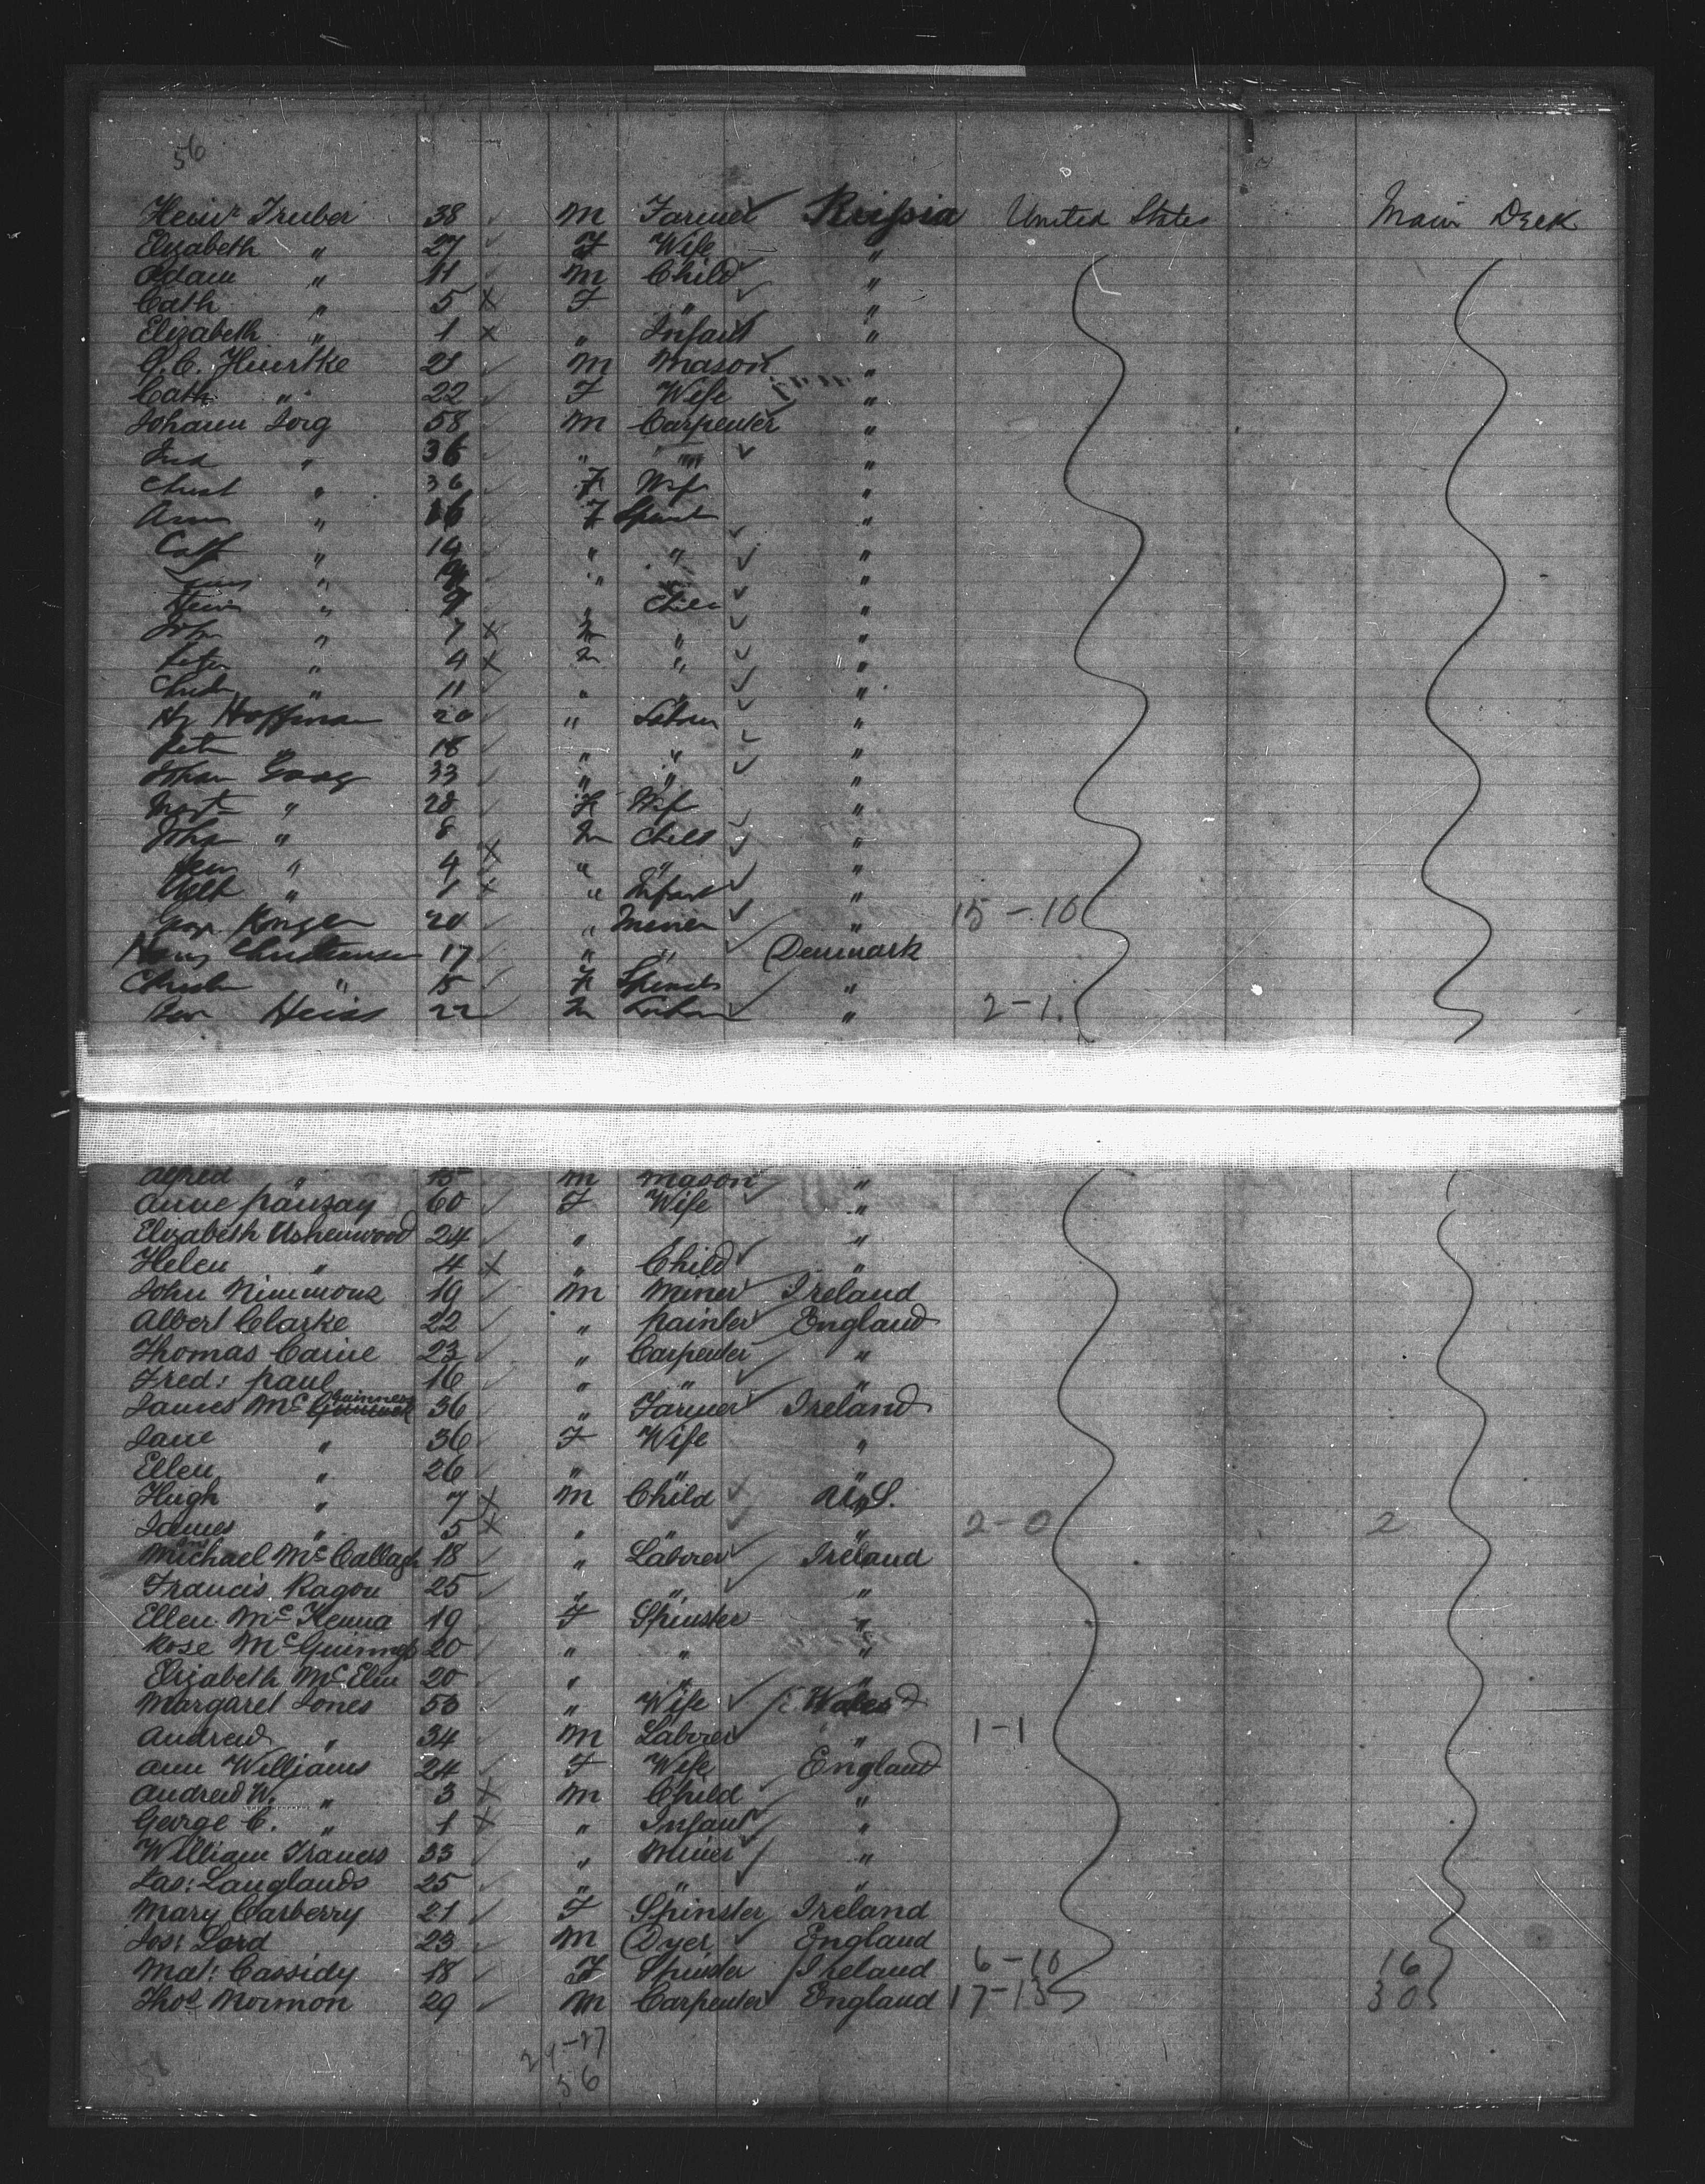 56
Heinr Truber 38 M Farmer Russia United States Main Deck
Elizabeth " 27 F Wife "
Adam " 11 M Child "
Cath " 5 x F " "
Elizabeth " 1 x " Infant "
G. C. Huertke 21 M Mason "
Cath " 22 F Wife "
Johann Jorg 58 M Carpenter "
" 36 " "
Christ " 36 F Wife "
Ann " 16 F Spinst "
Cath " 14 " " "
" " "
Hein " 9 " Child "
Joh " 7 x M " "
Peter " 4 x M " "
" 11 " " "
Hy Hoffman 20 " Labour "
Peter " 18 " " "
Johan Georg 33 " " "
" 28 F Wife "
Johan " 8 M Child "
" 4 x " " "
" 1 x " Infant "
20 " Miner " 15-10
Hans Christiansen 17 " " Denmark
" 15 F Spinster "
Heiss 22 M "  2-1
Alfred " 15 M Mason "
Anne 60 F Wife "
Elizabeth Ushenwood 24 " "
Helen " 4 x " Child "
John Nimmons 19 M Miner Ireland
Albert Clarke 22 " Painter England
Thomas Caine 23 " Carpenter "
Fred: Paul 16 " " "
James McGuinness 36 " Farmer Ireland
Jane " 36 F Wife "
Ellen " 26 " " "
Hugh " 7 x M Child U.S.
James " 5 x " " " 2-0 2
Michael McCallagh 18 " Laborer Ireland
Francis Ragon 25 " " "
Ellen McKenna 19 F Spinster "
Rose McGuinness 20 " " "
Elizabeth McElin 20 " " "
Margaret Jones 53 " Wife Wales
Andrew " 34 M Laborer " 1-1
Ann Williams 24 F Wife England
Andrew W. " 3 x M Child "
George C. " 1 x " Infant "
William Francis 33 " Miner "
Jas: Langlands 25 " " "
Mary Carberry 21 F Spinster Ireland
Jos: Lord 23 M Dyer England
Mat: Cassidy 18 F Spinster Ireland 6-10 16
Thos Mormon 29 M Carpenter England 17-13 30
29-27
56